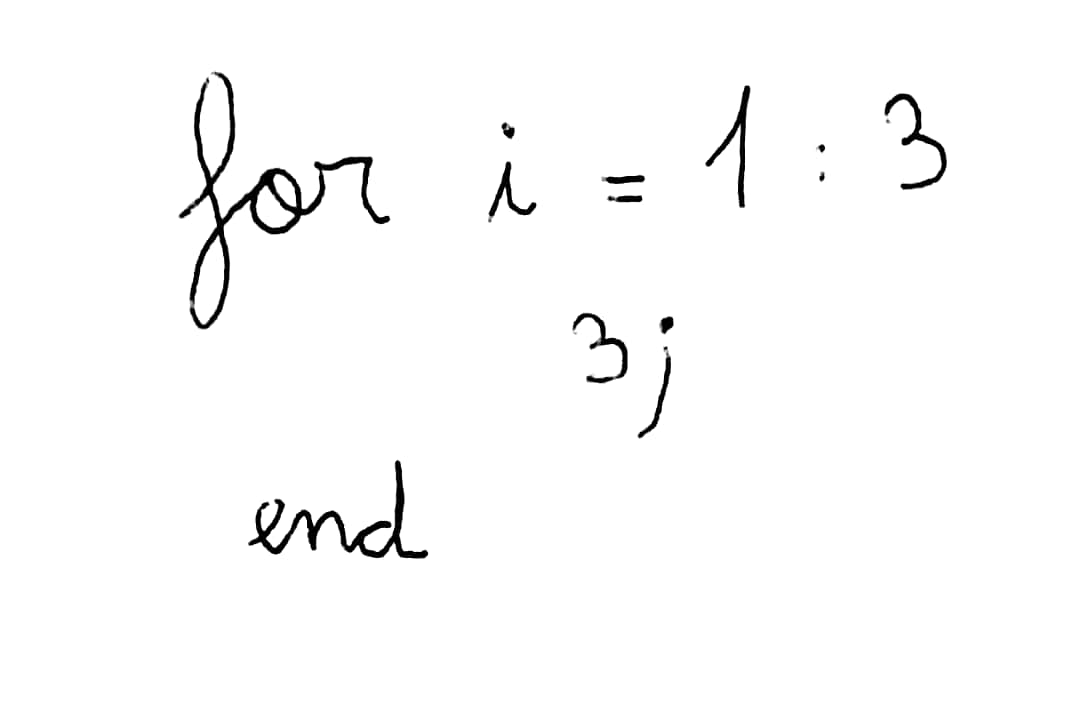 for i = 1 : 3
3;
end